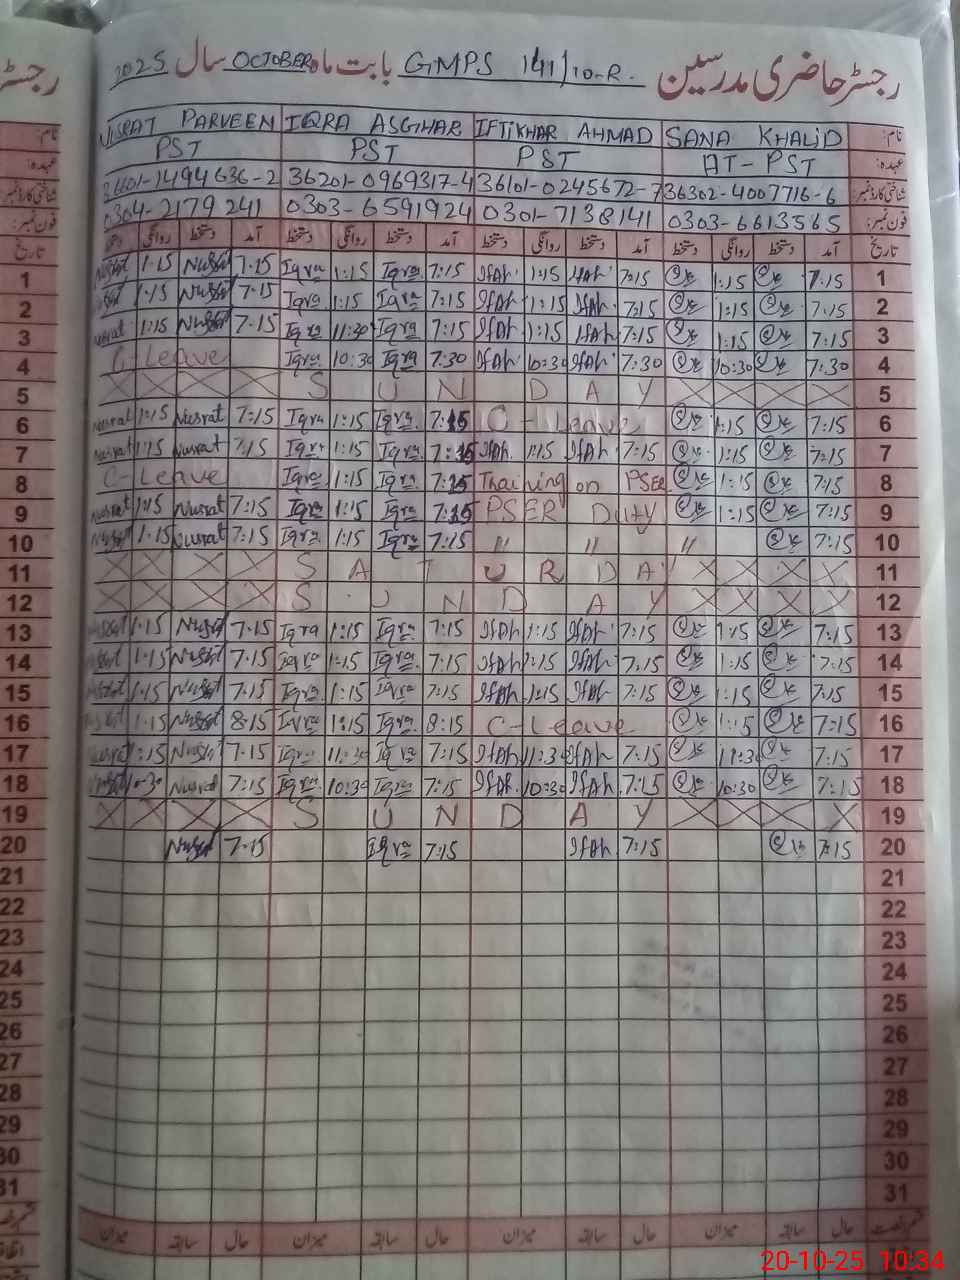 رجسٹر حاضری مدرسین GMPS 141/10-R. بابت ماہ OCTOBER سال 2025
نام: SANA KHALID IFTIKHAR AHMAD IQRA ASGHAR PARVEEN
عہدہ: AT-PST PST PST PST
شناختی کارڈ نمبر: 36302-4007716-6 36101-0245672-7 36201-0969317-4
فون نمبر: 0303-6613565 0301-7138141 0303-6591924 0304-2179241
تاریخ آمد دستخط روانگی دستخط آمد دستخط روانگی دستخط آمد دستخط روانگی دستخط آمد دستخط روانگی دستخط
1 7:15 1:15 7:15 IfAh 1:15 IfAh 7:15 Iqra 1:15 Iqra 7.15 Nusrat 1.15 Nusrat
2 7:15 1:15 7:15 IfAh 1:15 IfAh 7:15 Iqra 1:15 Iqra 7.15 Nusrat 1.15 Nusrat
3 7:15 1:15 7:15 IfAh 1:15 IfAh 7:15 Iqra 11:30 Iqra 7.15 Nusrat 1:15 Nusrat
4 7:30 10:30 7:30 IfAh 10:30 IfAh 7:30 Iqra 10:30 Iqra C-Leave
5 X X X X S U N D A Y X X X X
6 7:15 1:15 C-Leave 7:15 Iqra 1:15 Iqra 7:15 Nusrat 1:15 Nusrat
7 7:15 1:15 7:15 IfAh 1:15 IfAh 7:15 Iqra 1:15 Iqra 7.15 Nusrat 1:15 Nusrat
8 7:15 1:15 Training on PSER 7:15 Iqra 1:15 Iqra C-Leave
9 7:15 1:15 PSER Duty 7:15 Iqra 1:15 Iqra 7:15 Nusrat 1:15 Nusrat
10 7:15 " " " 7:15 Iqra 1:15 Iqra 7:15 Nusrat 1.15 Nusrat
11 X X X X S A T U R D A Y X X X X
12 X X X X S U N D A Y X X X X
13 7:15 1:15 7:15 IfAh 1:15 IfAh 7:15 Iqra 1:15 Iqra 7.15 Nusrat 1.15
14 7:15 1:15 7:15 IfAh 1:15 IfAh 7:15 Iqra 1:15 Iqra 7.15 Nusrat 1.15
15 7:15 1:15 7:15 IfAh 1:15 IfAh 7:15 Iqra 1:15 Iqra 7.15 Nusrat 1.15
16 7:15 1:15 C-Leave 8:15 Iqra 1:15 Iqra 8.15 Nusrat 1.15
17 7:15 11:30 7:15 IfAh 11:30 IfAh 7:15 Iqra 11:30 Iqra 7.15 Nusrat Nusrat
18 7:15 10:30 7:15 IfAh 10:30 IfAh 7:15 Iqra 10:30 Iqra 7:15 Nusrat
19 X X X X S U N D A Y X X X X
20 7:15 7:15 IfAh 7:15 Iqra 7.15 Nusrat
21
22
23
24
25
26
27
28
29
30
31
حال سابقہ میزان حال سابقہ میزان حال سابقہ میزان حال سابقہ میزان
20-10-25 10:34